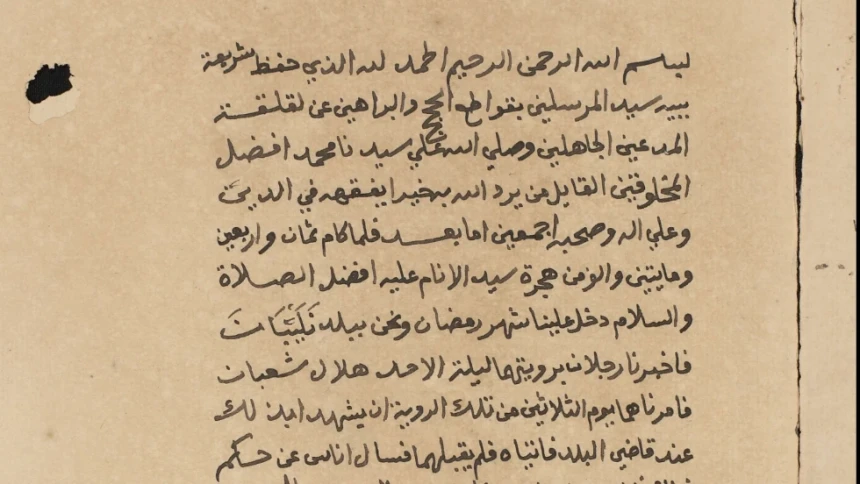 لبسم الله الرحمن الرحيم الحمد لله الذي حفظ شريعة
نبيه سيد المرسلين بقواطع الحجج والبراهين عن لقلقة
المدعين الجاهلين وصلي الله علي سيدنا محمد افضل
المخلوقين القايل من يرد الله به خيرا يفقهه في الدين
وعلي اله وصحبه اجمعين اما بعد فلما كام ثمان واربعين
ومايتين والف من هجرة سيد الانام عليه افضل الصلاة
والسلام دخل علينا شهر رمضان ونحن ببلد
فاخبرنا رجلان برويتهما ليلة الاحد هلال شعبان
فامرناهما يوم الثلاثين من تلك الروية ان يشهدا بذلك
عند قاضي البلد فاتياه فلم يقبلهما فسال اناس عن حكم